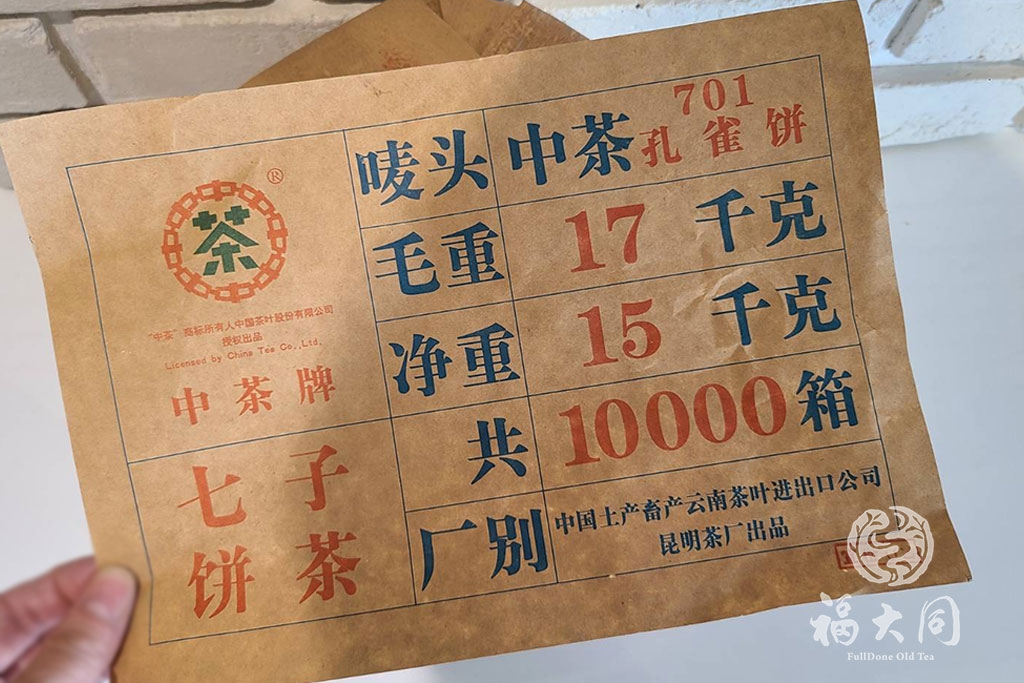 茶
®
"中茶"商标所有人中国茶叶股份有限公司
授权出品
Licensed by China Tea Co.,Ltd.
中茶牌
七子
饼茶
唛头 中茶 701
孔雀饼
毛重 17 千克
净重 15 千克
共 10000 箱
厂别 中国土产畜产云南茶叶进出口公司
昆明茶厂出品
福大同
FullDone Old Tea